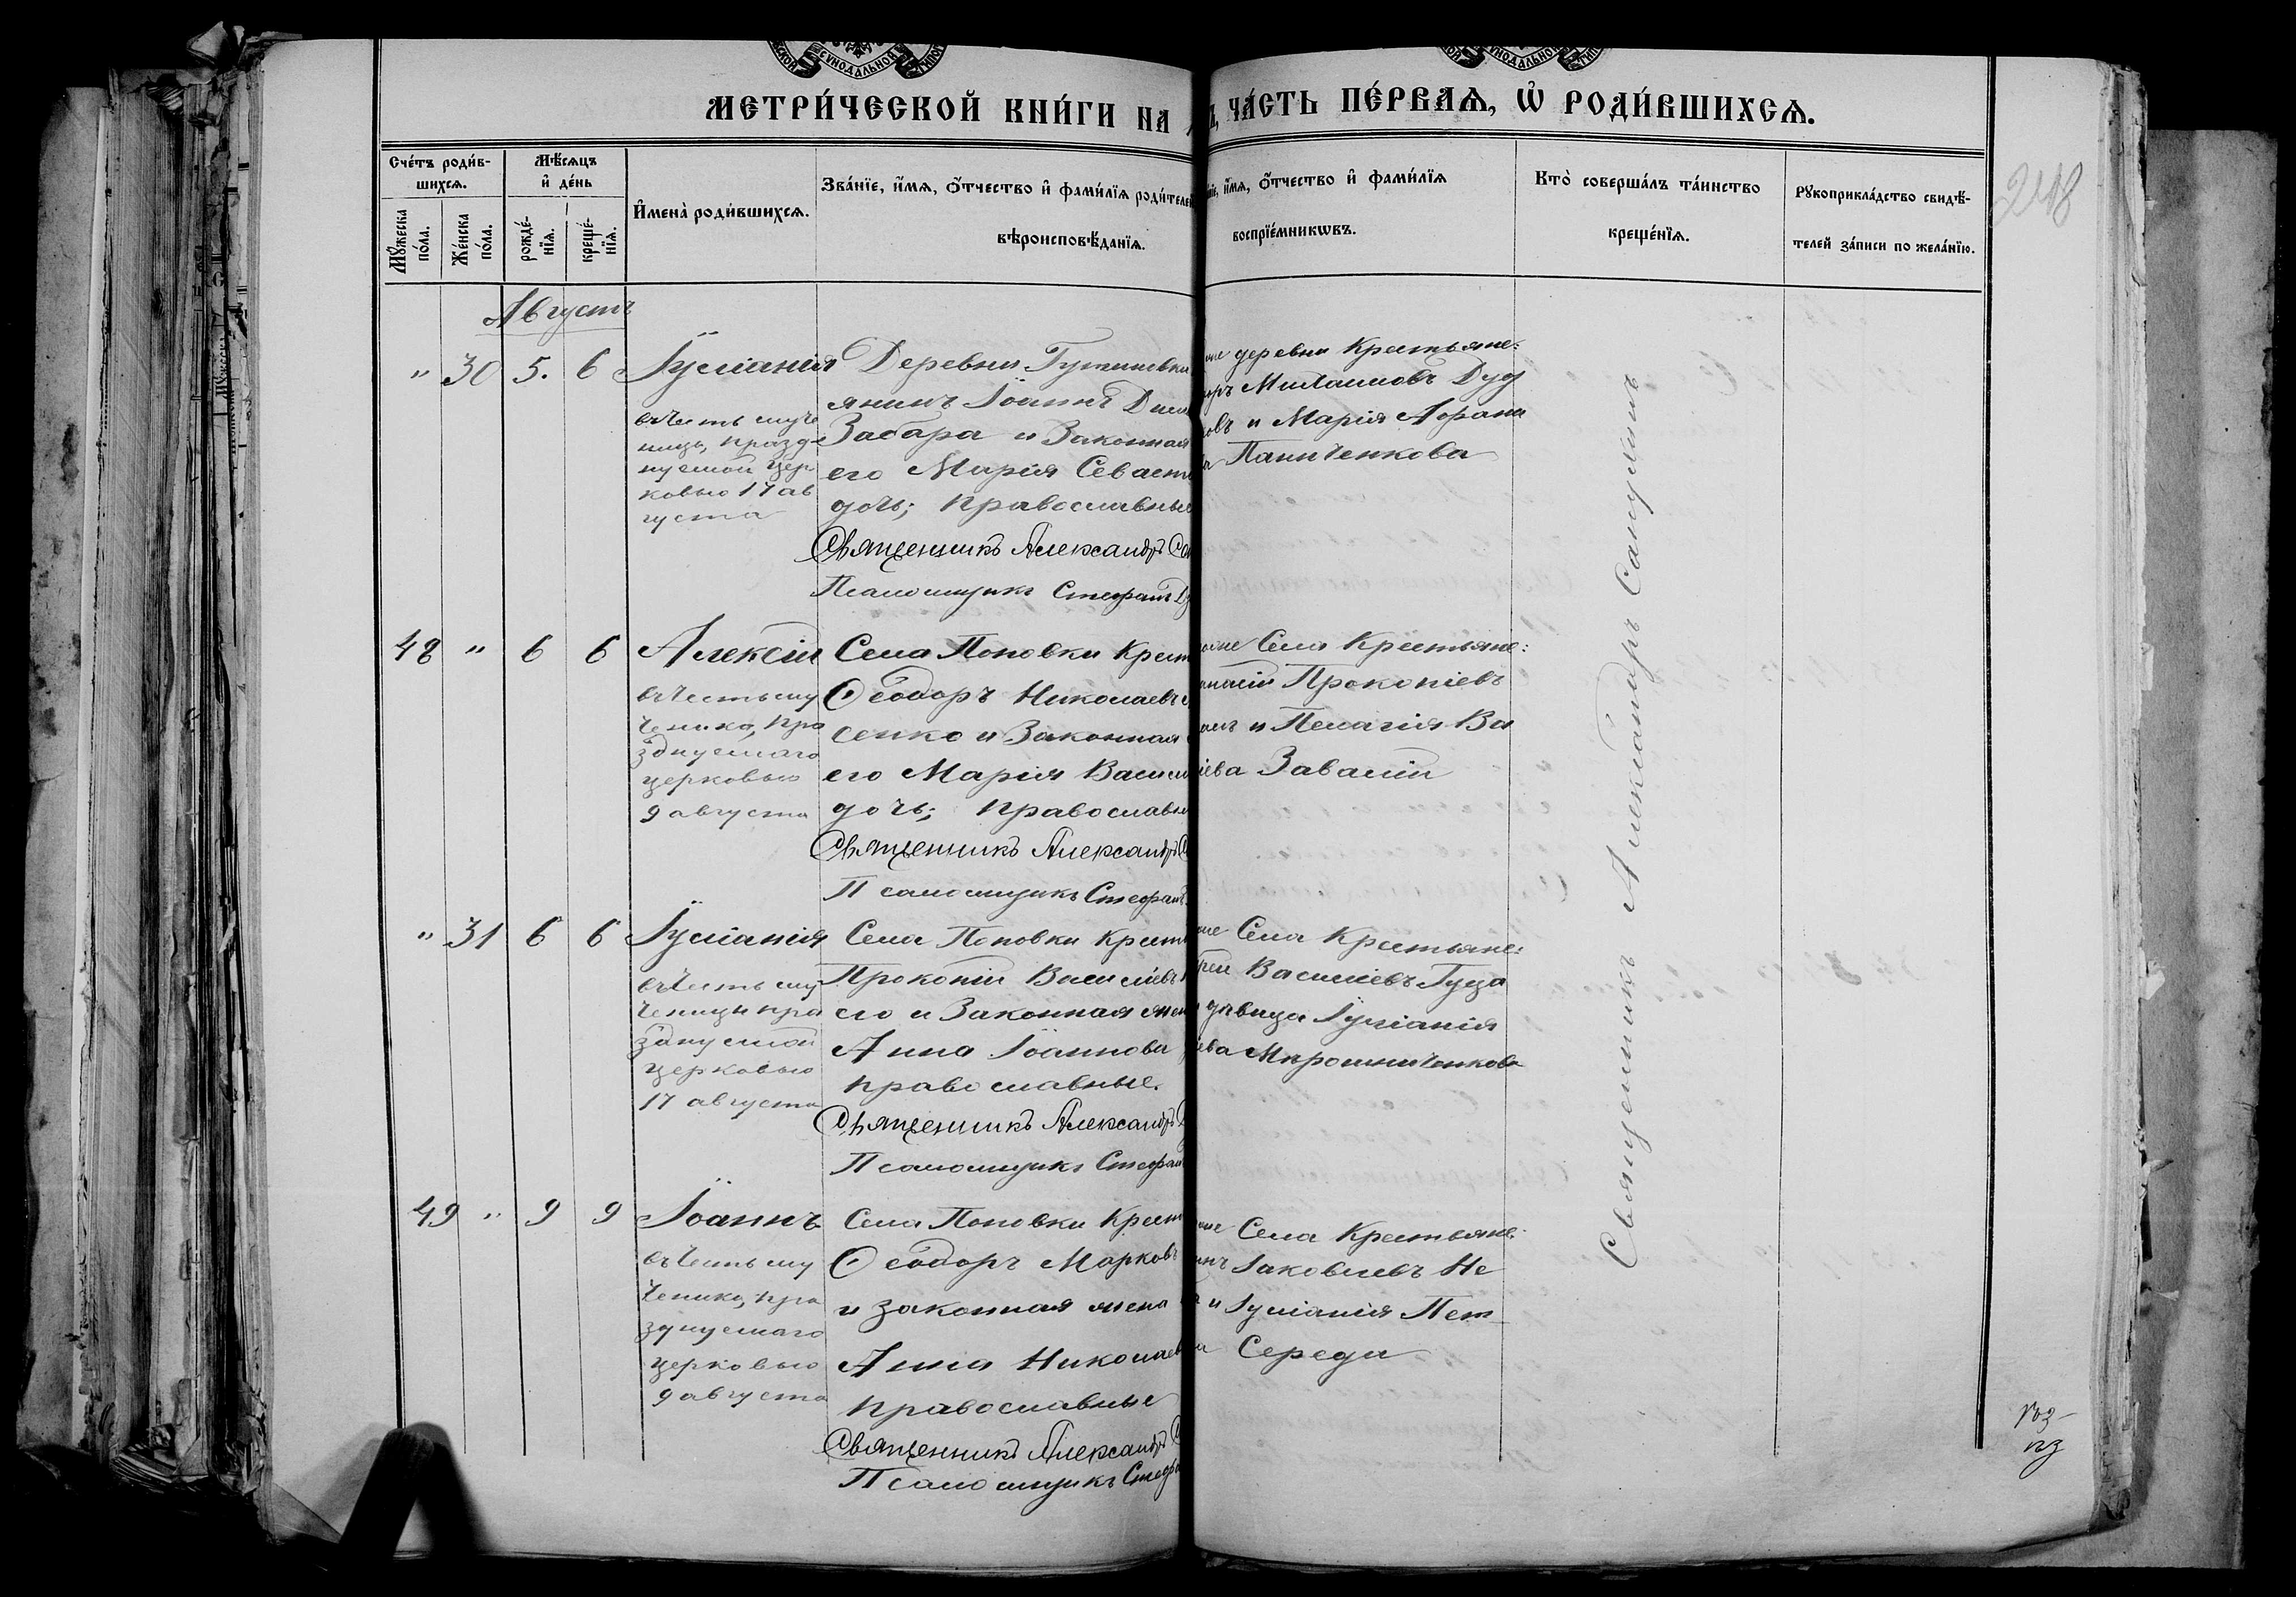 МЕТРИ́ЧЕСКОЙ КНИ́ГИ НА
ЧА́СТЬ ПЕ́РВАЯ, Ѡ҆ РОДИ́ВШИХСЯ.
Сче́тъ роди́в-
шихсѧ.
Мѣ́сѧцъ
и҆ де́нь
И҆мена̀ роди́вшихсѧ.
Зва́нїе, и҆́мѧ, ѻ҆́тчество и҆ фами́лїѧ роди́телей
вѣроисповѣ́данїѧ.
и҆́мѧ, ѻ҆́тчество и҆ фами́лїѧ
воспрїе́мникѡвъ.
Кто̀ соверша́лъ та́инство
креще́нїѧ.
Рꙋкоприкла́дство свидѣ́-
телей за́писи по жела́нїю.
Мꙋ́жеска
по́ла.
Же́нска
по́ла.
рожде́-
нїѧ.
креще́-
нїѧ.
248
Августъ
" 30 5. 6 Іуліанія
въ честь муче
ницы, празд-
нуемой цер
ковью 17 ав
густа
Деревни
янинъ Іоаннъ
Забара и Законная
его Марія Севаст
дочь; православные
Священникъ Александръ
Псаломщикъ Стефанъ
деревни Крестьяне:
Михаиловъ Дуд
и Марія Афана
Паниченкова
48 " 6 6 Алексій
въ честь му
ченика, пра
зднуемаго
церковью
9 августа
Села Поповки Крест
Ѳеодоръ Николаевъ
сенко и Законная
его Марія Васил
дочь; православн
Священникъ Александръ
Псаломщикъ Стефанъ
Села Крестьяне:
Прокопіевъ
и Пелагія Ва
Завалій
" 31 6 6 Іуліанія
въ честь му
ченицы пра
зднуемой
церковью
17 августа
Села Поповки Крест
Прокопій Василіевъ
его и Законная жен
Анна Іоаннова
православные.
Священникъ Александръ
Псаломщикъ Стефан
Села Крестьяне:
Василіевъ Гуца
дѣвица Іуліанія
Мирошниченкова
49 " 9 9 Іоаннъ
въ честь му
ченика, пра
зднуемаго
церковью
9 августа
Села Поповки Крест
Ѳеодоръ Марковъ
и законная жена
Анна Николаев
православные
Священникъ Александръ
Псаломщикъ Стеф
Села Крестьяне:
Іаковлевъ Не
и Іуліанія Пет
Середа
Священникъ Александръ Сапулинъ